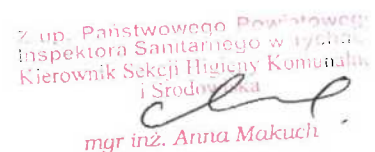 Z up. Państwowego Powiatowego
Inspektora Sanitarnego w Tychach
Kierownik Sekcji Higieny Komunalnej
i Środowiska
mgr inż. Anna Makuch